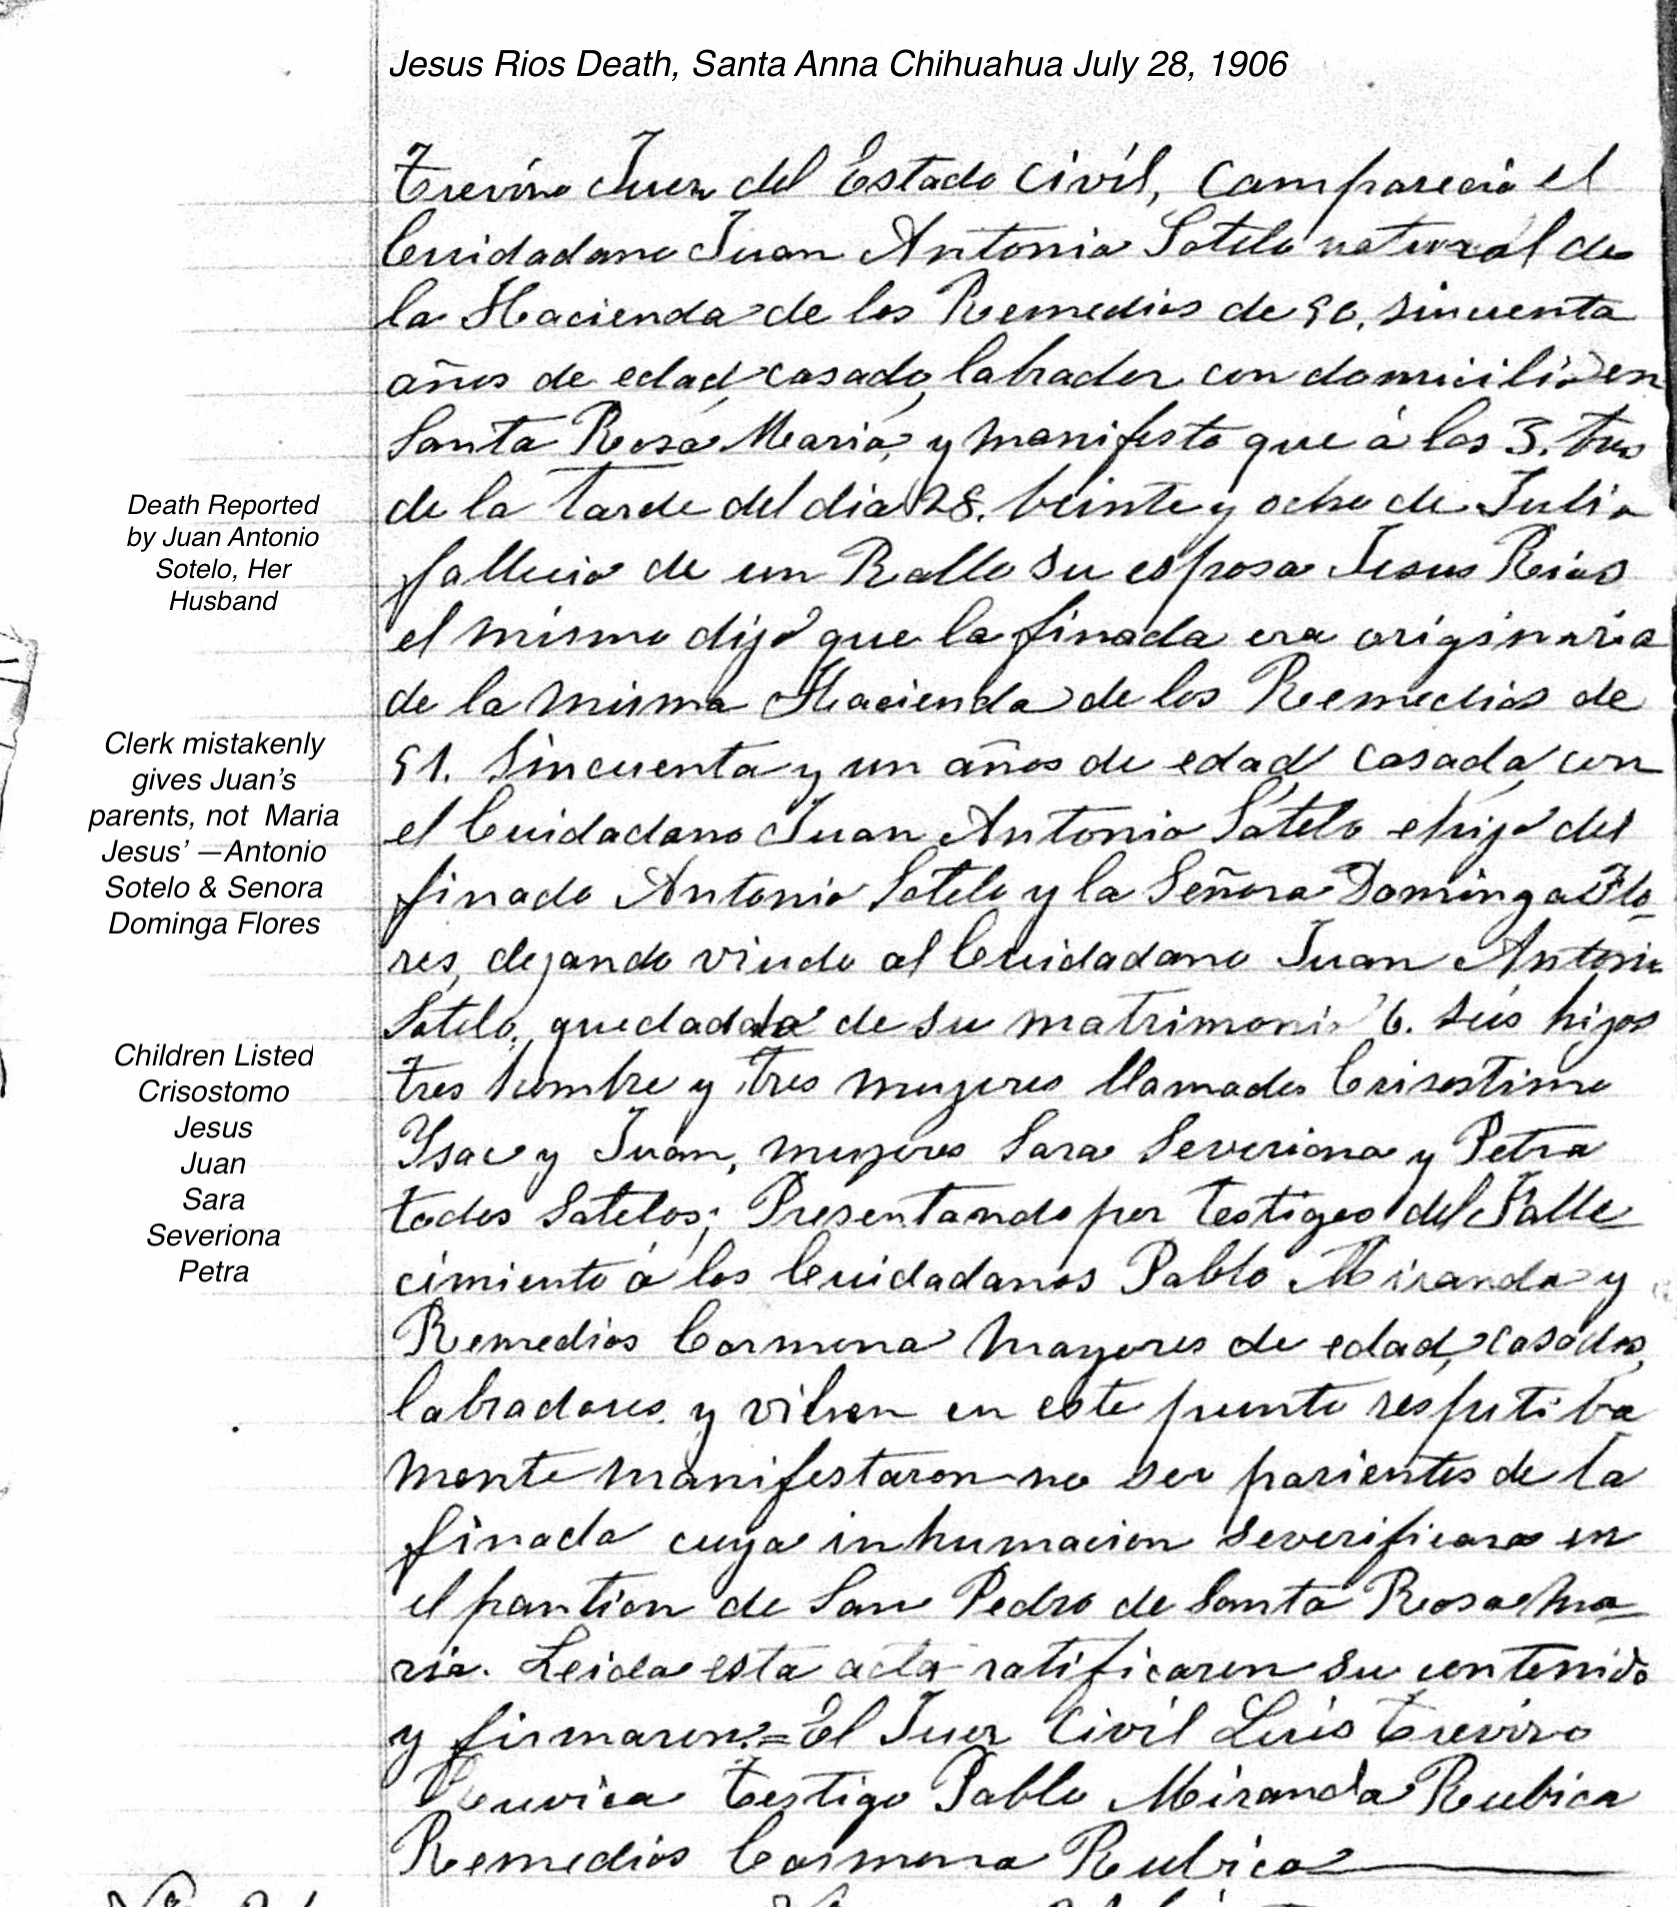 Jesus Rios Death, Santa Anna Chihuahua July 28, 1906
Treviño Juez del Estado Civil, Camparecio el
Cuidadano Juan Antonio Sotelo natural de
la Hacienda de los Remedios de 50. sincuenta
años de edad, casado, labrador con domicilio en
Santa Rosa Maria, y manifesto que á las 3. tres
de la tarde del dia 28. beinte y ocho de Julio
fallecio de un Rallo su esposa Jesus Rios
el mismo dijo que la finada era originaria
de la misma Hacienda de los Remedios de
51. Sincuenta y un años de edad casada con
el Cuidadano Juan Antonio Sotelo e hija del
finado Antonio Sotelo y la Señora Dominga Flo-
res, dejando viudo al Cuidadano Juan Antonio
Sotelo, de su matrimonio 6. seis hijos
tres hombre y tres mujeres llamados Crisostimo
Ysac y Juan, mujeres Sara Severiana y Petra
todos Sotelos; Presentando por testigos del Falle
cimiento á los Cuidadanos Pablo Miranda y
Remedios Carmona mayores de edad, casados,
labradores y viben en este punto respetiba
mente manifestaron no ser parientes de la
finada cuya inhumacion severificara en
el pantion de San Pedro de Santa Rosa Ma-
ria. Leida esta acta ratificaron su contenido
y firmaron.= El Juez Civil Luis Treviño
Testigo Pablo Miranda Rubica
Remedios Carmona Rubica
Death Reported
by Juan Antonio
Sotelo, Her
Husband
Clerk mistakenly
gives Juan’s
parents, not Maria
Jesus’ —Antonio
Sotelo & Senora
Dominga Flores
Children Listed
Crisostomo
Jesus
Juan
Sara
Severiona
Petra